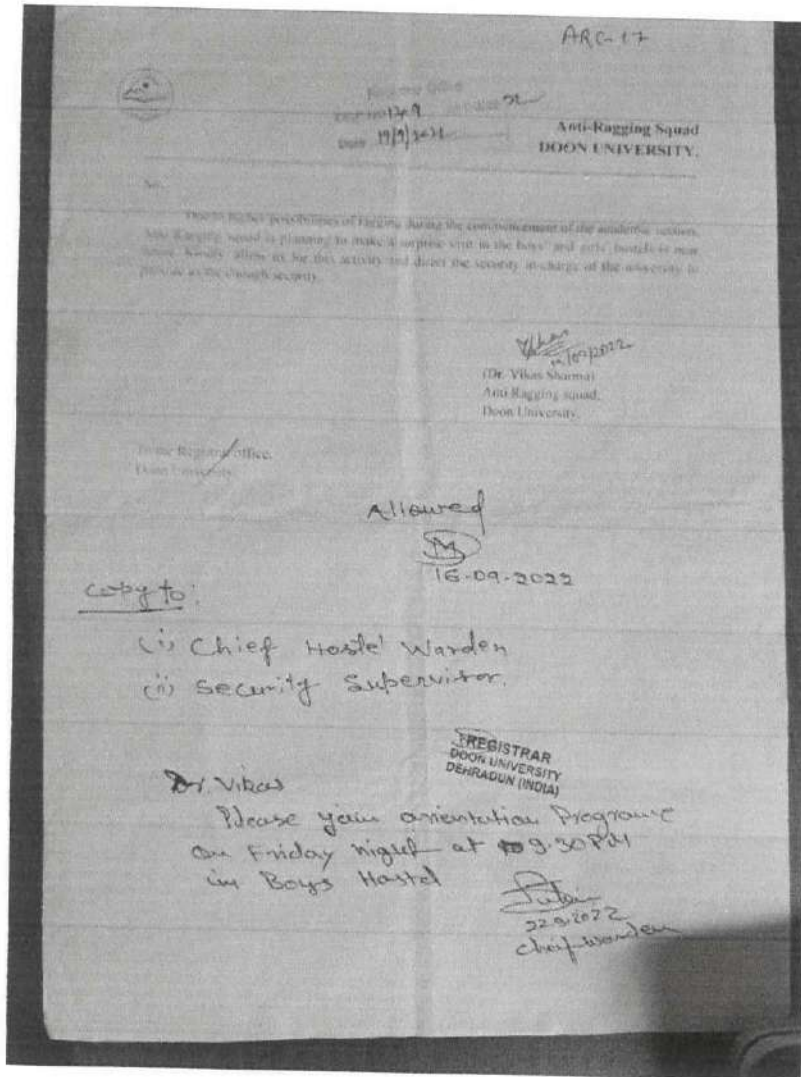 ARC-17
Registrar Office
1349
Date 19/9/2022
Anti-Ragging Squad
DOON UNIVERSITY.
Due to higher possibilities of ragging during the commencement of the academic session,
Anti Ragging squad is planning to make a surprise visit in the boys' and girls' hostels in near
future. Kindly allow us for this activity and direct the security in-charge of the university to
provide us the enough security.
(Dr. Vikas Sharma)
Anti Ragging squad,
Doon University.
To the Registrar office,
Doon University.
Allowed
16-09-2022
Copy to:
(i) Chief Hostel Warden
(ii) Security Supervisor.
REGISTRAR
DOON UNIVERSITY
DEHRADUN (INDIA)
Dr. Vikas
Please orientation Programe
on Friday night at 9.30 PM
in Boys Hostel
22.9.2022
Cheif-warden